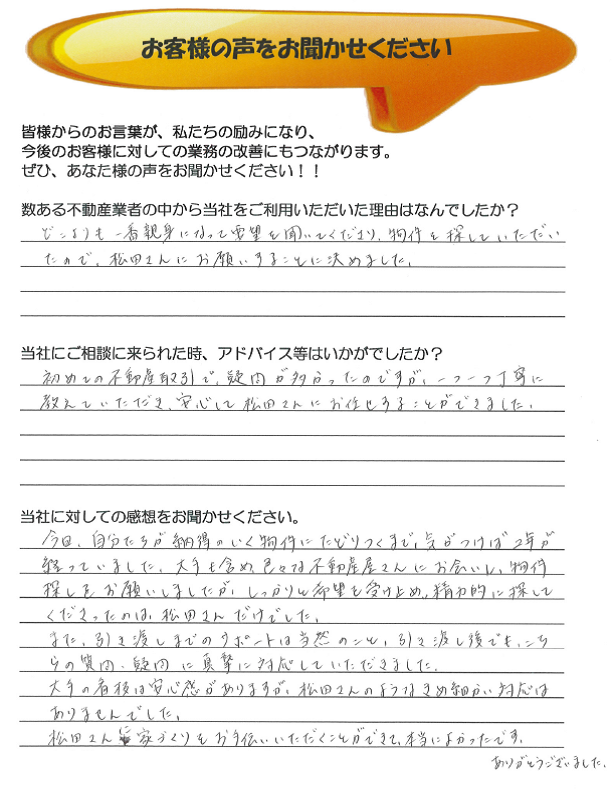 お客様の声をお聞かせください
皆様からのお言葉が、私たちの励みになり、
今後のお客様に対しての業務の改善にもつながります。
ぜひ、あなた様の声をお聞かせください！！
数ある不動産業者の中から当社をご利用いただいた理由はなんでしたか？
どこよりも一番親身になって要望を聞いてくださり、物件を探していただい
たので、松田さんにお願いすることに決めました。
当社にご相談に来られた時、アドバイス等はいかがでしたか？
初めての不動産取引で、疑問が多かったのですが、一つ一つ丁寧に
教えていただき、安心して松田さんにお任せすることができました。
当社に対しての感想をお聞かせください。
今回、自分たちが納得のいく物件にたどりつくまで、気がつけば2年が
経っていました。大手も含め、色々な不動産屋さんにお会いし、物件
探しをお願いしましたが、しっかりと希望を受け止め、精力的に探して
くださったのは、松田さんだけでした。
また、引き渡しまでのサポートは当然のこと、引き渡し後でも、こち
らの質問、疑問に真摯に対応していただきました。
大手の看板は安心感がありますが、松田さんのようなきめ細かい対応は
ありませんでした。
松田さんに家づくりをお手伝いいただくことができて、本当によかったです。
ありがとうございました。